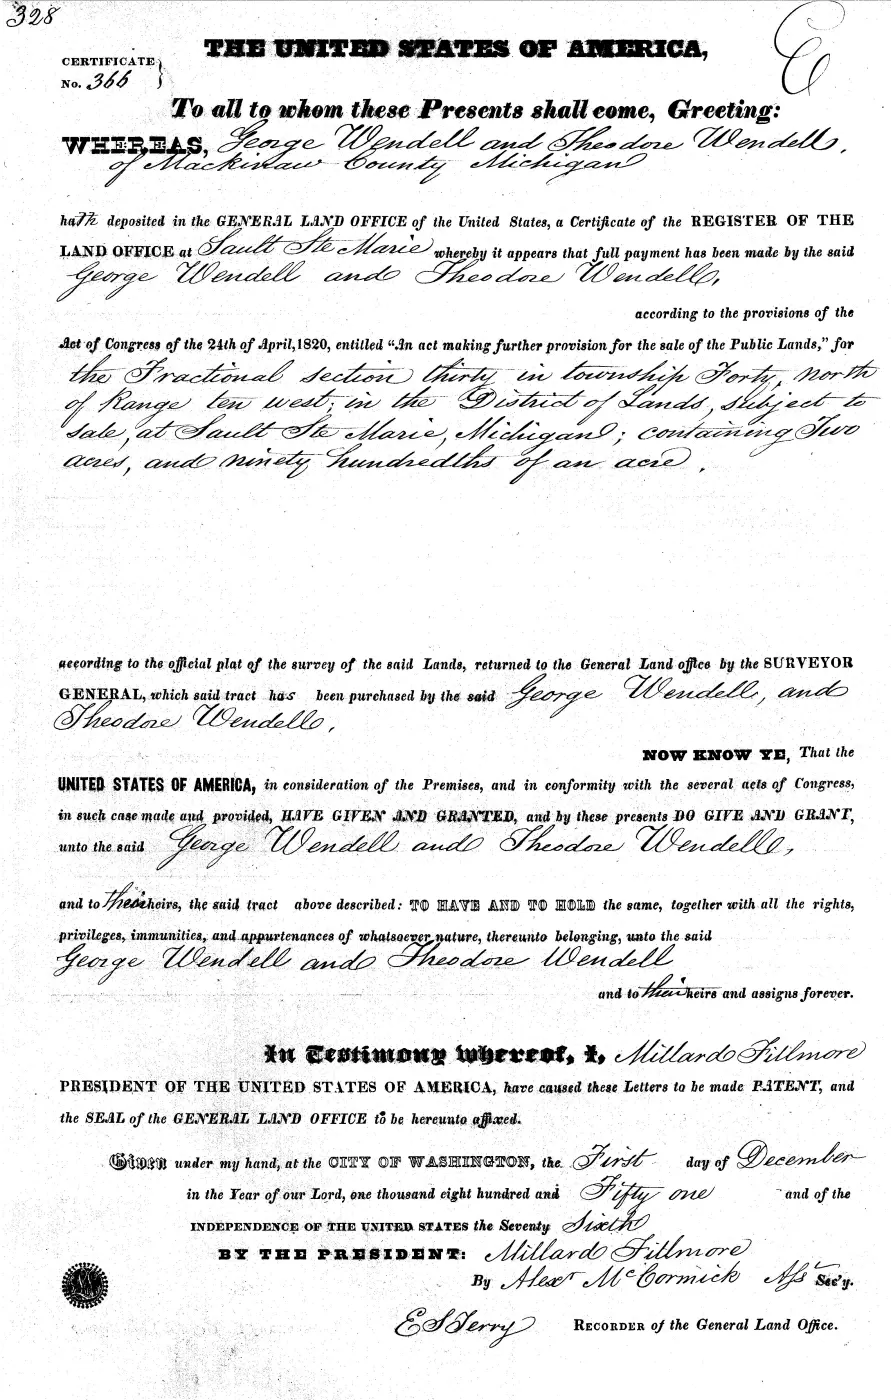 328
THE UNITED STATES OF AMERICA,
CERTIFICATE
No. 366
To all to whom these Presents shall come, Greeting:
WHEREAS, George Wendell and Theodore Wendell,
of Mackinaw County Michigan
hath deposited in the GENERAL LAND OFFICE of the United States, a Certificate of the REGISTER OF THE
LAND OFFICE at Sault Ste Marie whereby it appears that full payment has been made by the said
George Wendell and Theodore Wendell,
according to the provisions of the
Act of Congress of the 24th of April, 1820, entitled "An act making further provision for the sale of the Public Lands," for
the Fractional section thirty in township Forty, north
of Range ten west; in the District of Lands, subject to
sale, at Sault Ste Marie, Michigan; containing Two
acres, and ninety hundredths of an acre.
according to the official plat of the survey of the said Lands, returned to the General Land office by the SURVEYOR
GENERAL, which said tract has been purchased by the said George Wendell, and
Theodore Wendell,
NOW KNOW YE, That the
UNITED STATES OF AMERICA, in consideration of the Premises, and in conformity with the several acts of Congress,
in such case made and provided, HAVE GIVEN AND GRANTED, and by these presents DO GIVE AND GRANT,
unto the said George Wendell and Theodore Wendell,
and to their heirs, the said tract above described: TO HAVE AND TO HOLD the same, together with all the rights,
privileges, immunities, and appurtenances of whatsoever nature, thereunto belonging, unto the said
George Wendell and Theodore Wendell
and to their heirs and assigns forever.
In Testimony whereof, I, Millard Fillmore
PRESIDENT OF THE UNITED STATES OF AMERICA, have caused these Letters to be made PATENT, and
the SEAL of the GENERAL LAND OFFICE to be hereunto affixed.
Given under my hand, at the CITY OF WASHINGTON, the First day of December
in the Year of our Lord, one thousand eight hundred and Fifty one and of the
INDEPENDENCE OF THE UNITED STATES the Seventy Sixth
BY THE PRESIDENT: Millard Fillmore
By Alexr McCormick Asst Sec'y.
E S Terry RECORDER of the General Land Office.